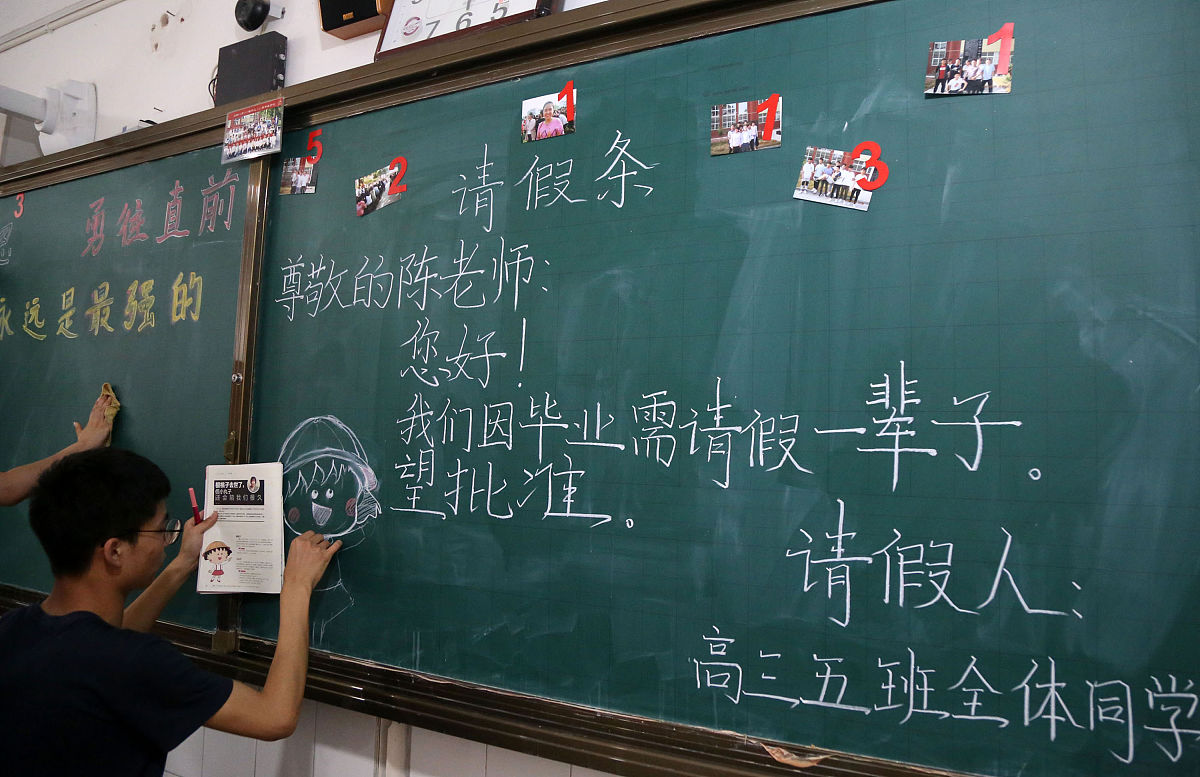 7 6 5
5
2
1
1
3
1
3
勇往直前
永远是最强的
请假条
尊敬的陈老师:
您好!
我们因毕业需请假一辈子。
望批准。
请假人:
高三五班全体同学